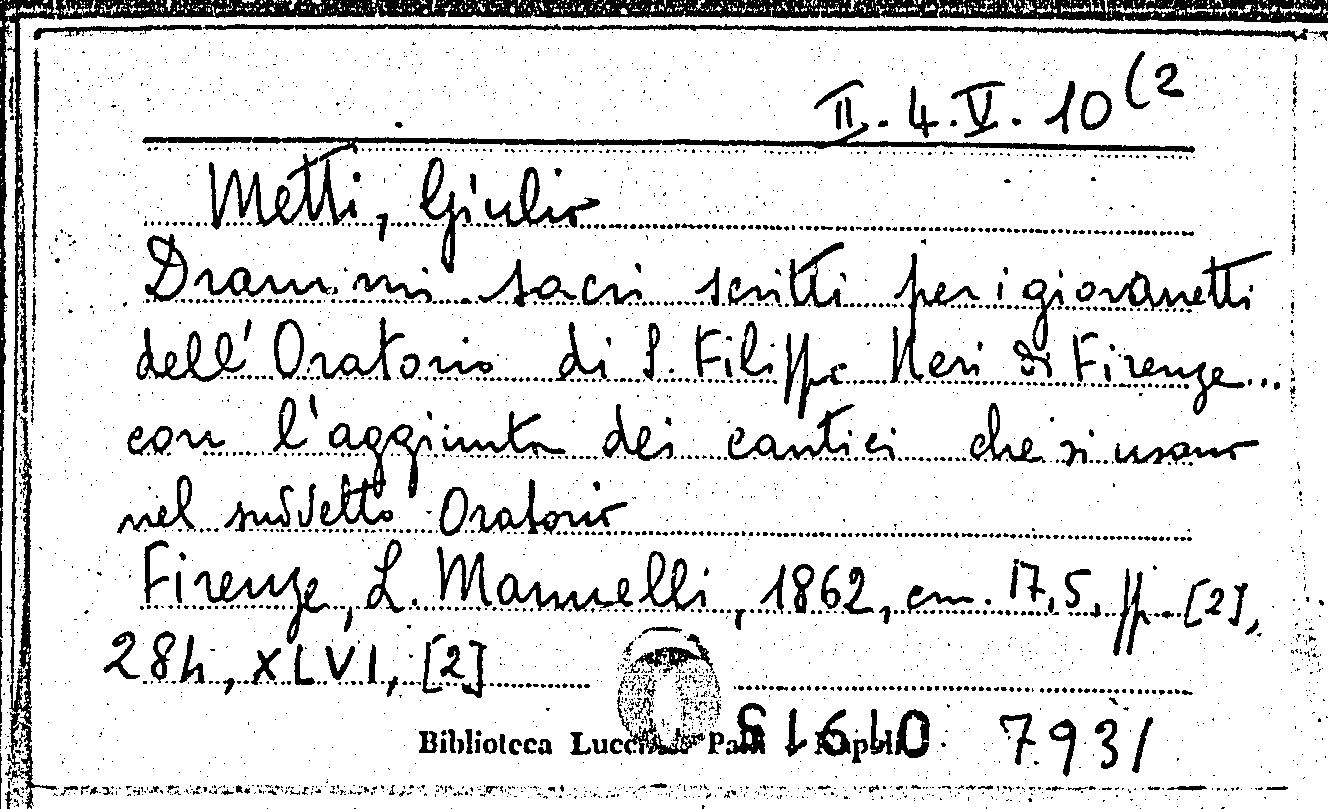 II. 4. V. 10 (2
Metti, Giulio
Drammi sacri scritti per i giovanetti
dell'Oratorio di S. Filippo Neri di Firenze...
con l'aggiunta dei cantici che si usano
nel suddetto Oratorio
Firenze, L. Manuelli, 1862, cm. 17,5, pp. [2],
284, XLVI, [2]
Biblioteca 7931